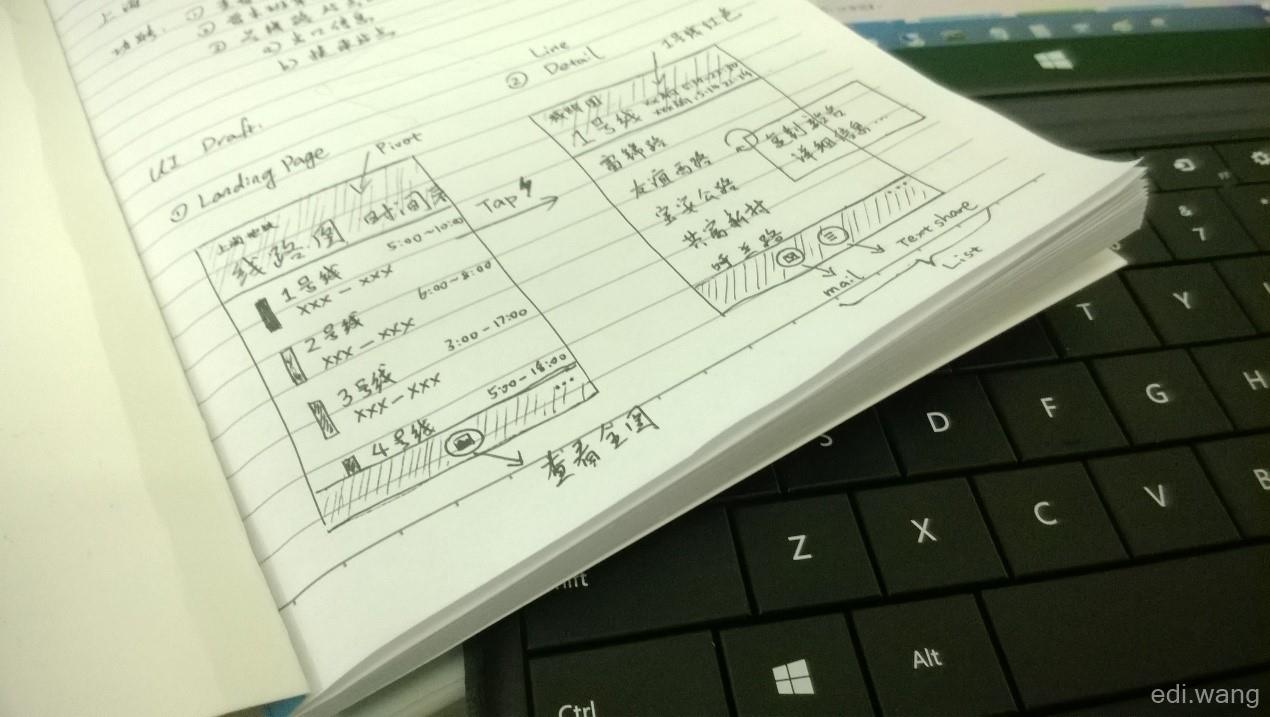 上海
功能: ①
②
③ 号线路
a) 出口信息
b) 换乘站点
UI Draft.
① Landing Page
Pivot
上海地铁
线路图 时间表
1号线
5:00~10:00
xxx - xxx
2号线
6:00-8:00
xxx - xxx
3号线
3:00-17:00
xxx - xxx
4号线
5:00-18:00
查看全图
Tap
② Line
Detail
1号线红色
线路图
1号线
富锦路
友谊西路
宝安公路
共富新村
呼兰路
复制站名
详细信息...
mail
Text share
List
7
&
T
Y
S
D
F
G
H
Shift
Z
X
C
V
B
Ctrl
Alt
edi.wang